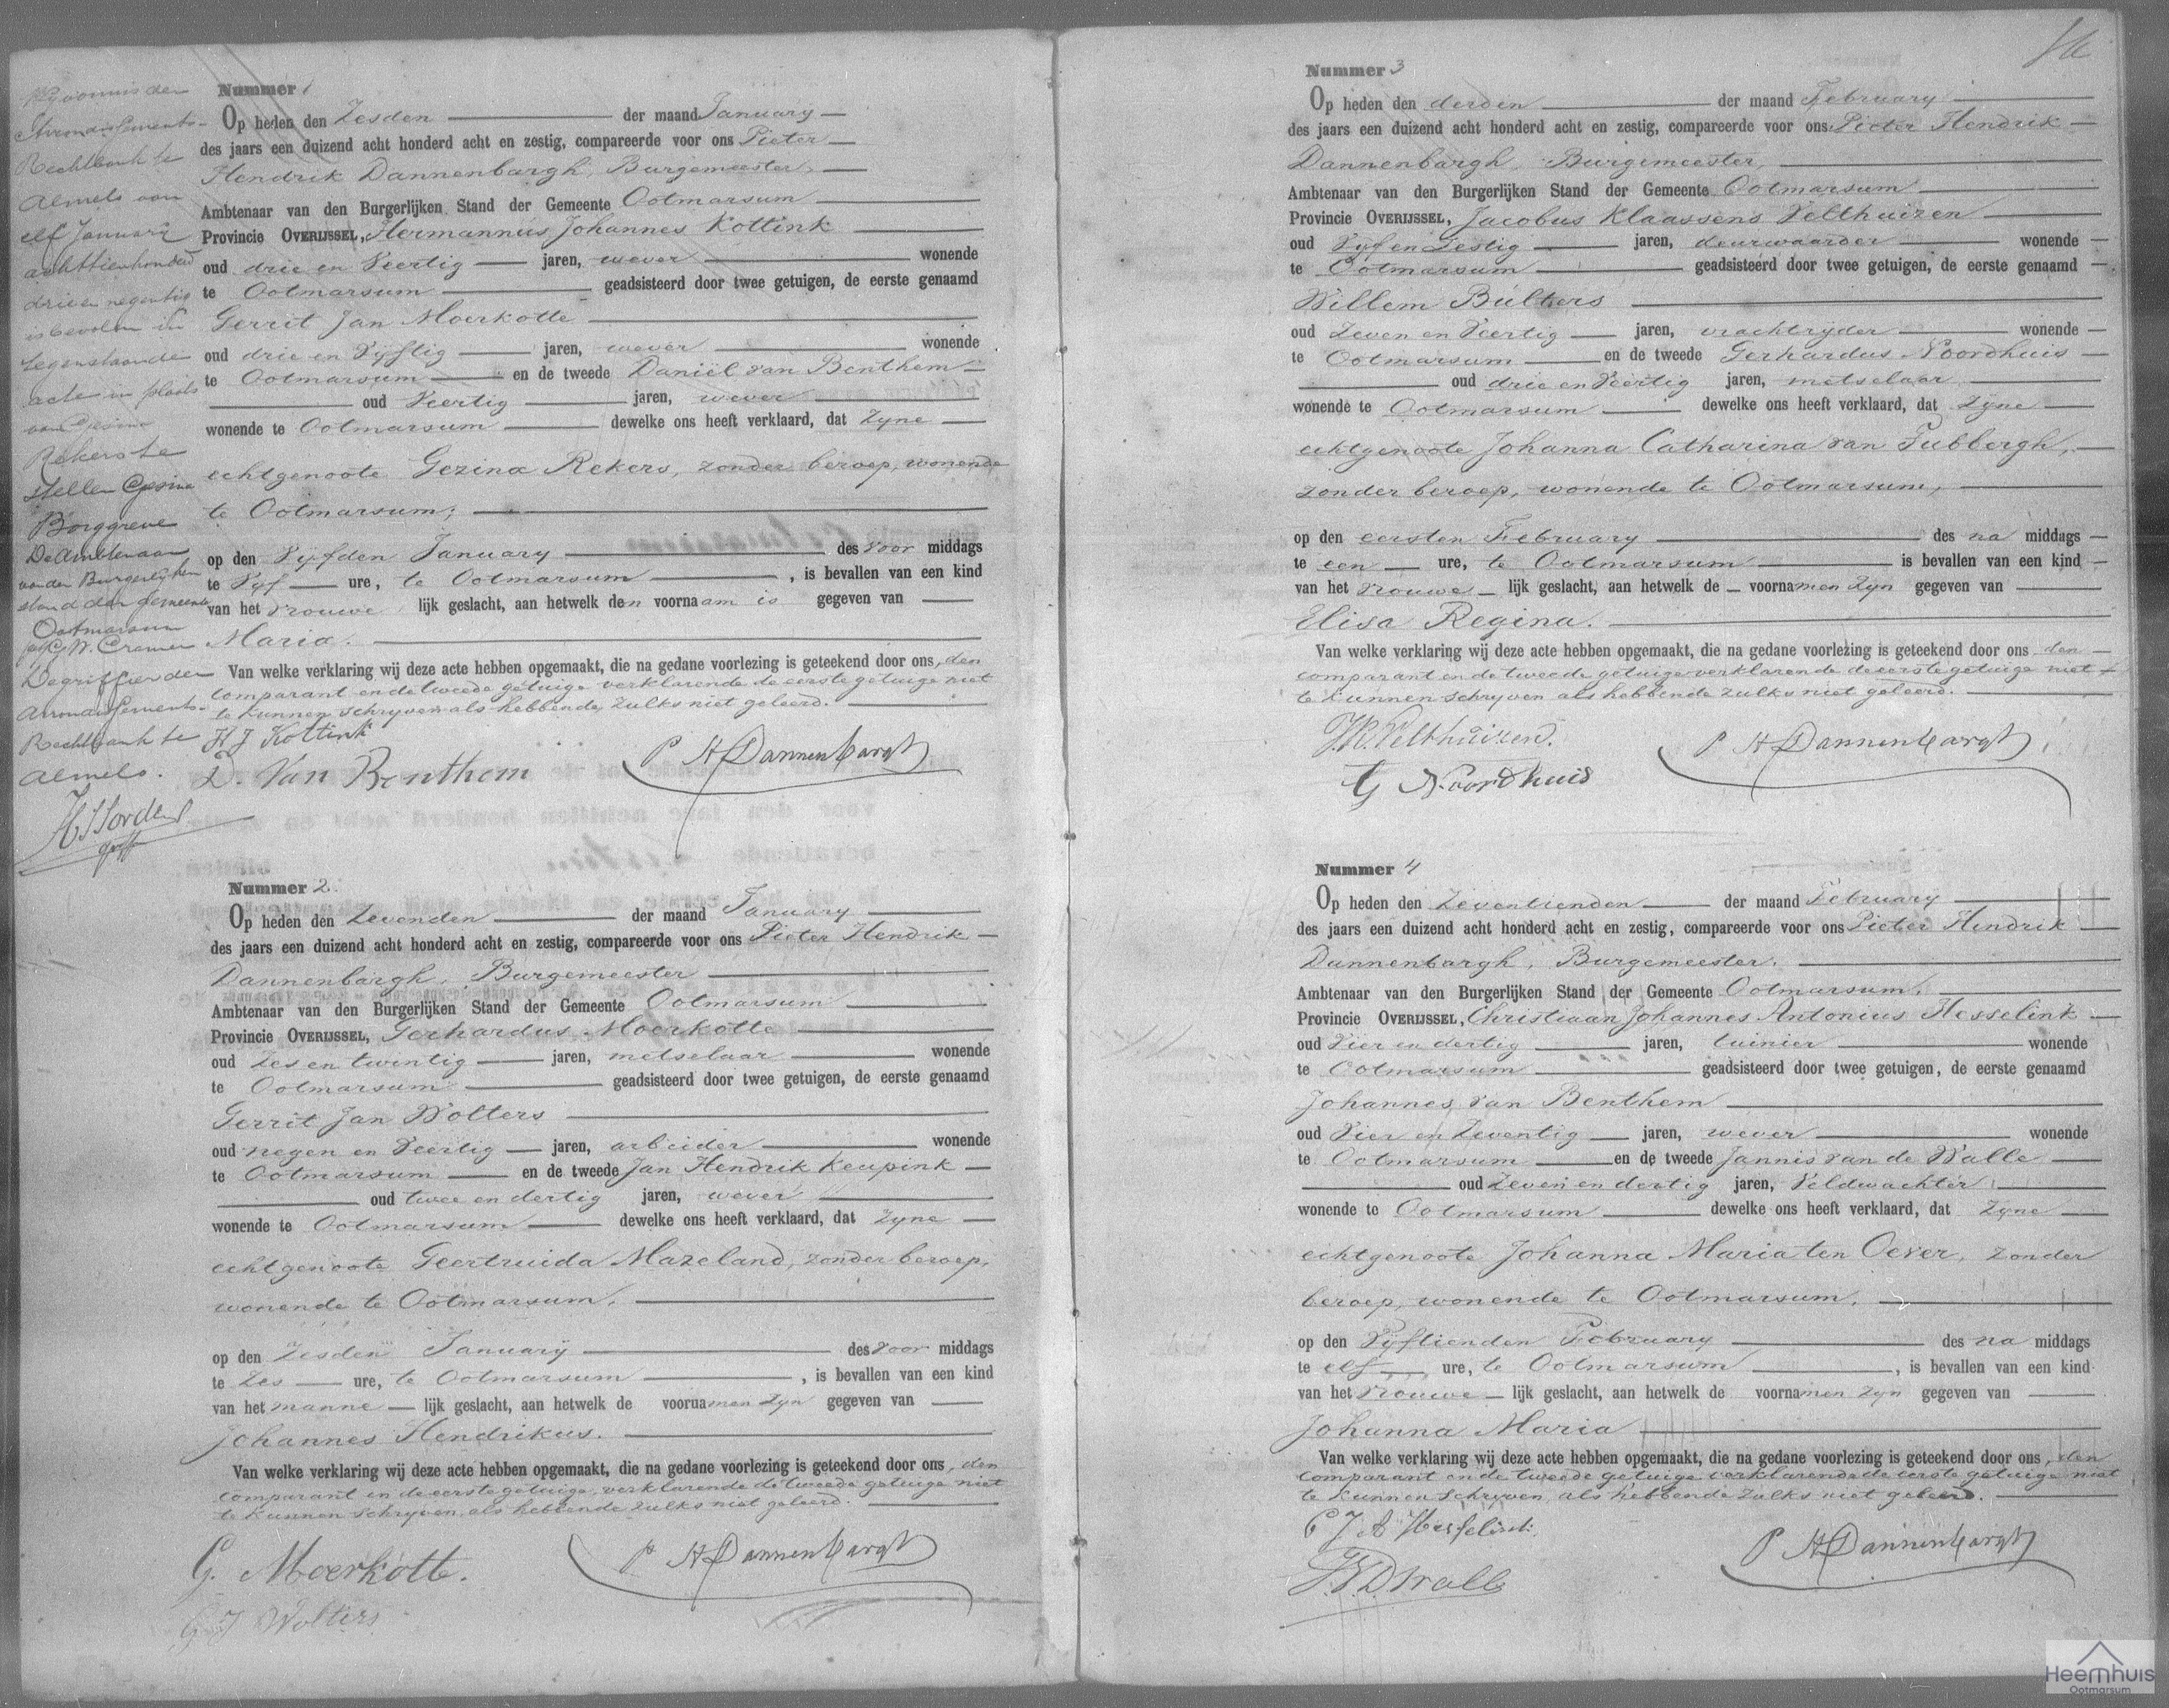 By vonnis der
Arrondissements-
Rechtbank te
Almelo van
elf Januari
achttienhonderd
drie en negentig
is bevolen in
tegenstaande
acte in plaats
van Gesina
Rekers te
stellen Gesina
Borggreve
De Ambtenaar
van den Burgerlijken
stand der gemeente
Ootmarsum
G.W. Cramer
De griffier der
Arrondissements-
Rechtbank te
Almelo.
griff
Nummer 1
Op heden den Zesden der maand January
des jaars een duizend acht honderd acht en zestig, compareerde voor ons Pieter
Hendrik Dannenbargh, Burgemeester,
Ambtenaar van den Burgerlijken Stand der Gemeente Ootmarsum
Provincie OVERIJSSEL, Hermannus Johannes Kottink
oud drie en Veertig jaren, wever wonende
te Ootmarsum geadsisteerd door twee getuigen, de eerste genaamd
Gerrit Jan Moerkotte
oud drie en Vyftig jaren, wever wonende
te Ootmarsum en de tweede Daniël van Benthem
oud Veertig jaren, wever
wonende te Ootmarsum dewelke ons heeft verklaard, dat Zyne
echtgenoote Gezina Rekers, zonder beroep, wonende
te Ootmarsum;
op den Vyfden January des Voor middags
te Vyf ure, te Ootmarsum, is bevallen van een kind
van het Vrouwe lijk geslacht, aan hetwelk den voornaam is gegeven van
Maria.
Van welke verklaring wij deze acte hebben opgemaakt, die na gedane voorlezing is geteekend door ons, den
comparant en de tweede getuige verklarende de eerste getuige niet
te kunnen schryven als hebbende zulks niet geleerd.
H J Kottink
D. Van Benthem
P H Dannenbargh
Nummer 2.
Op heden den Zevenden der maand January
des jaars een duizend acht honderd acht en zestig, compareerde voor ons Pieter Hendrik
Dannenbargh, Burgemeester
Ambtenaar van den Burgerlijken Stand der Gemeente Ootmarsum
Provincie OVERIJSSEL, Gerhardus Moerkotte
oud zes en twintig jaren, metselaar wonende
te Ootmarsum geadsisteerd door twee getuigen, de eerste genaamd
Gerrit Jan Wolters
oud negen en Veertig jaren, arbeider wonende
te Ootmarsum en de tweede Jan Hendrik Keupink
oud twee en dertig jaren, wever
wonende te Ootmarsum dewelke ons heeft verklaard, dat Zyne
echtgenoote Geertruida Mazeland, zonder beroep,
wonende te Ootmarsum,
op den Zesden January des Voor middags
te Zes ure, te Ootmarsum, is bevallen van een kind
van het manne lijk geslacht, aan hetwelk de voornamen Zyn gegeven van
Johannes Hendrikus.
Van welke verklaring wij deze acte hebben opgemaakt, die na gedane voorlezing is geteekend door ons, den
comparant en de eerste getuige, verklarende de tweede getuige niet
te kunnen schryven als hebbende zulks niet geleerd.
G. Moerkotte.
G J Wolters
P H Dannenbargh
Nummer 3
Op heden den derden der maand February
des jaars een duizend acht honderd acht en zestig, compareerde voor ons Pieter Hendrik
Dannenbargh, Burgemeester,
Ambtenaar van den Burgerlijken Stand der Gemeente Ootmarsum
Provincie OVERIJSSEL, Jacobus Klaassens Velthuizen
oud Vyf en Zestig jaren, deurwaarder wonende
te Ootmarsum geadsisteerd door twee getuigen, de eerste genaamd
Willem Bulters
oud Zeven en Veertig jaren, vrachtryder wonende
te Ootmarsum en de tweede Gerhardus Noordhuis
oud drie en Veertig jaren, metselaar
wonende te Ootmarsum dewelke ons heeft verklaard, dat Zyne
echtgenoote Johanna Catharina van Tubbergh,
zonder beroep, wonende te Ootmarsum,
op den eersten February des na middags
te een ure, te Ootmarsum is bevallen van een kind
van het Vrouwe lijk geslacht, aan hetwelk de voornamen Zyn gegeven van
Elisa Regina.
Van welke verklaring wij deze acte hebben opgemaakt, die na gedane voorlezing is geteekend door ons den
comparant en de tweede getuige verklarende de eerste getuige niet
te kunnen schryven als hebbende zulks niet geleerd.
J.K. Velthuizen.
G Noordhuis
P H Dannenbargh
Nummer 4
Op heden den Zeventienden der maand February
des jaars een duizend acht honderd acht en zestig, compareerde voor ons Pieter Hendrik
Dannenbargh, Burgemeester,
Ambtenaar van den Burgerlijken Stand der Gemeente Ootmarsum,
Provincie OVERIJSSEL, Christiaan Johannes Antonius Hesselink
oud Vier en dertig jaren, tuinier wonende
te Ootmarsum geadsisteerd door twee getuigen, de eerste genaamd
Johannes van Benthem
oud Vier en Zeventig jaren, wever wonende
te Ootmarsum en de tweede Jannis van de Walle
oud Zeven en dertig jaren, Veldwachter
wonende te Ootmarsum dewelke ons heeft verklaard, dat Zyne
echtgenoote Johanna Maria ten Oever, zonder
beroep, wonende te Ootmarsum,
op den Vyftienden February des na middags
te elf ure, te Ootmarsum, is bevallen van een kind
van het Vrouwe lijk geslacht, aan hetwelk de voornamen Zyn gegeven van
Johanna Maria
Van welke verklaring wij deze acte hebben opgemaakt, die na gedane voorlezing is geteekend door ons, den
comparant en de tweede getuige verklarende de eerste getuige niet
te kunnen schryven als hebbende zulks niet geleerd.
C J A Hesselink
P H Dannenbargh
Heemhuis
Ootmarsum